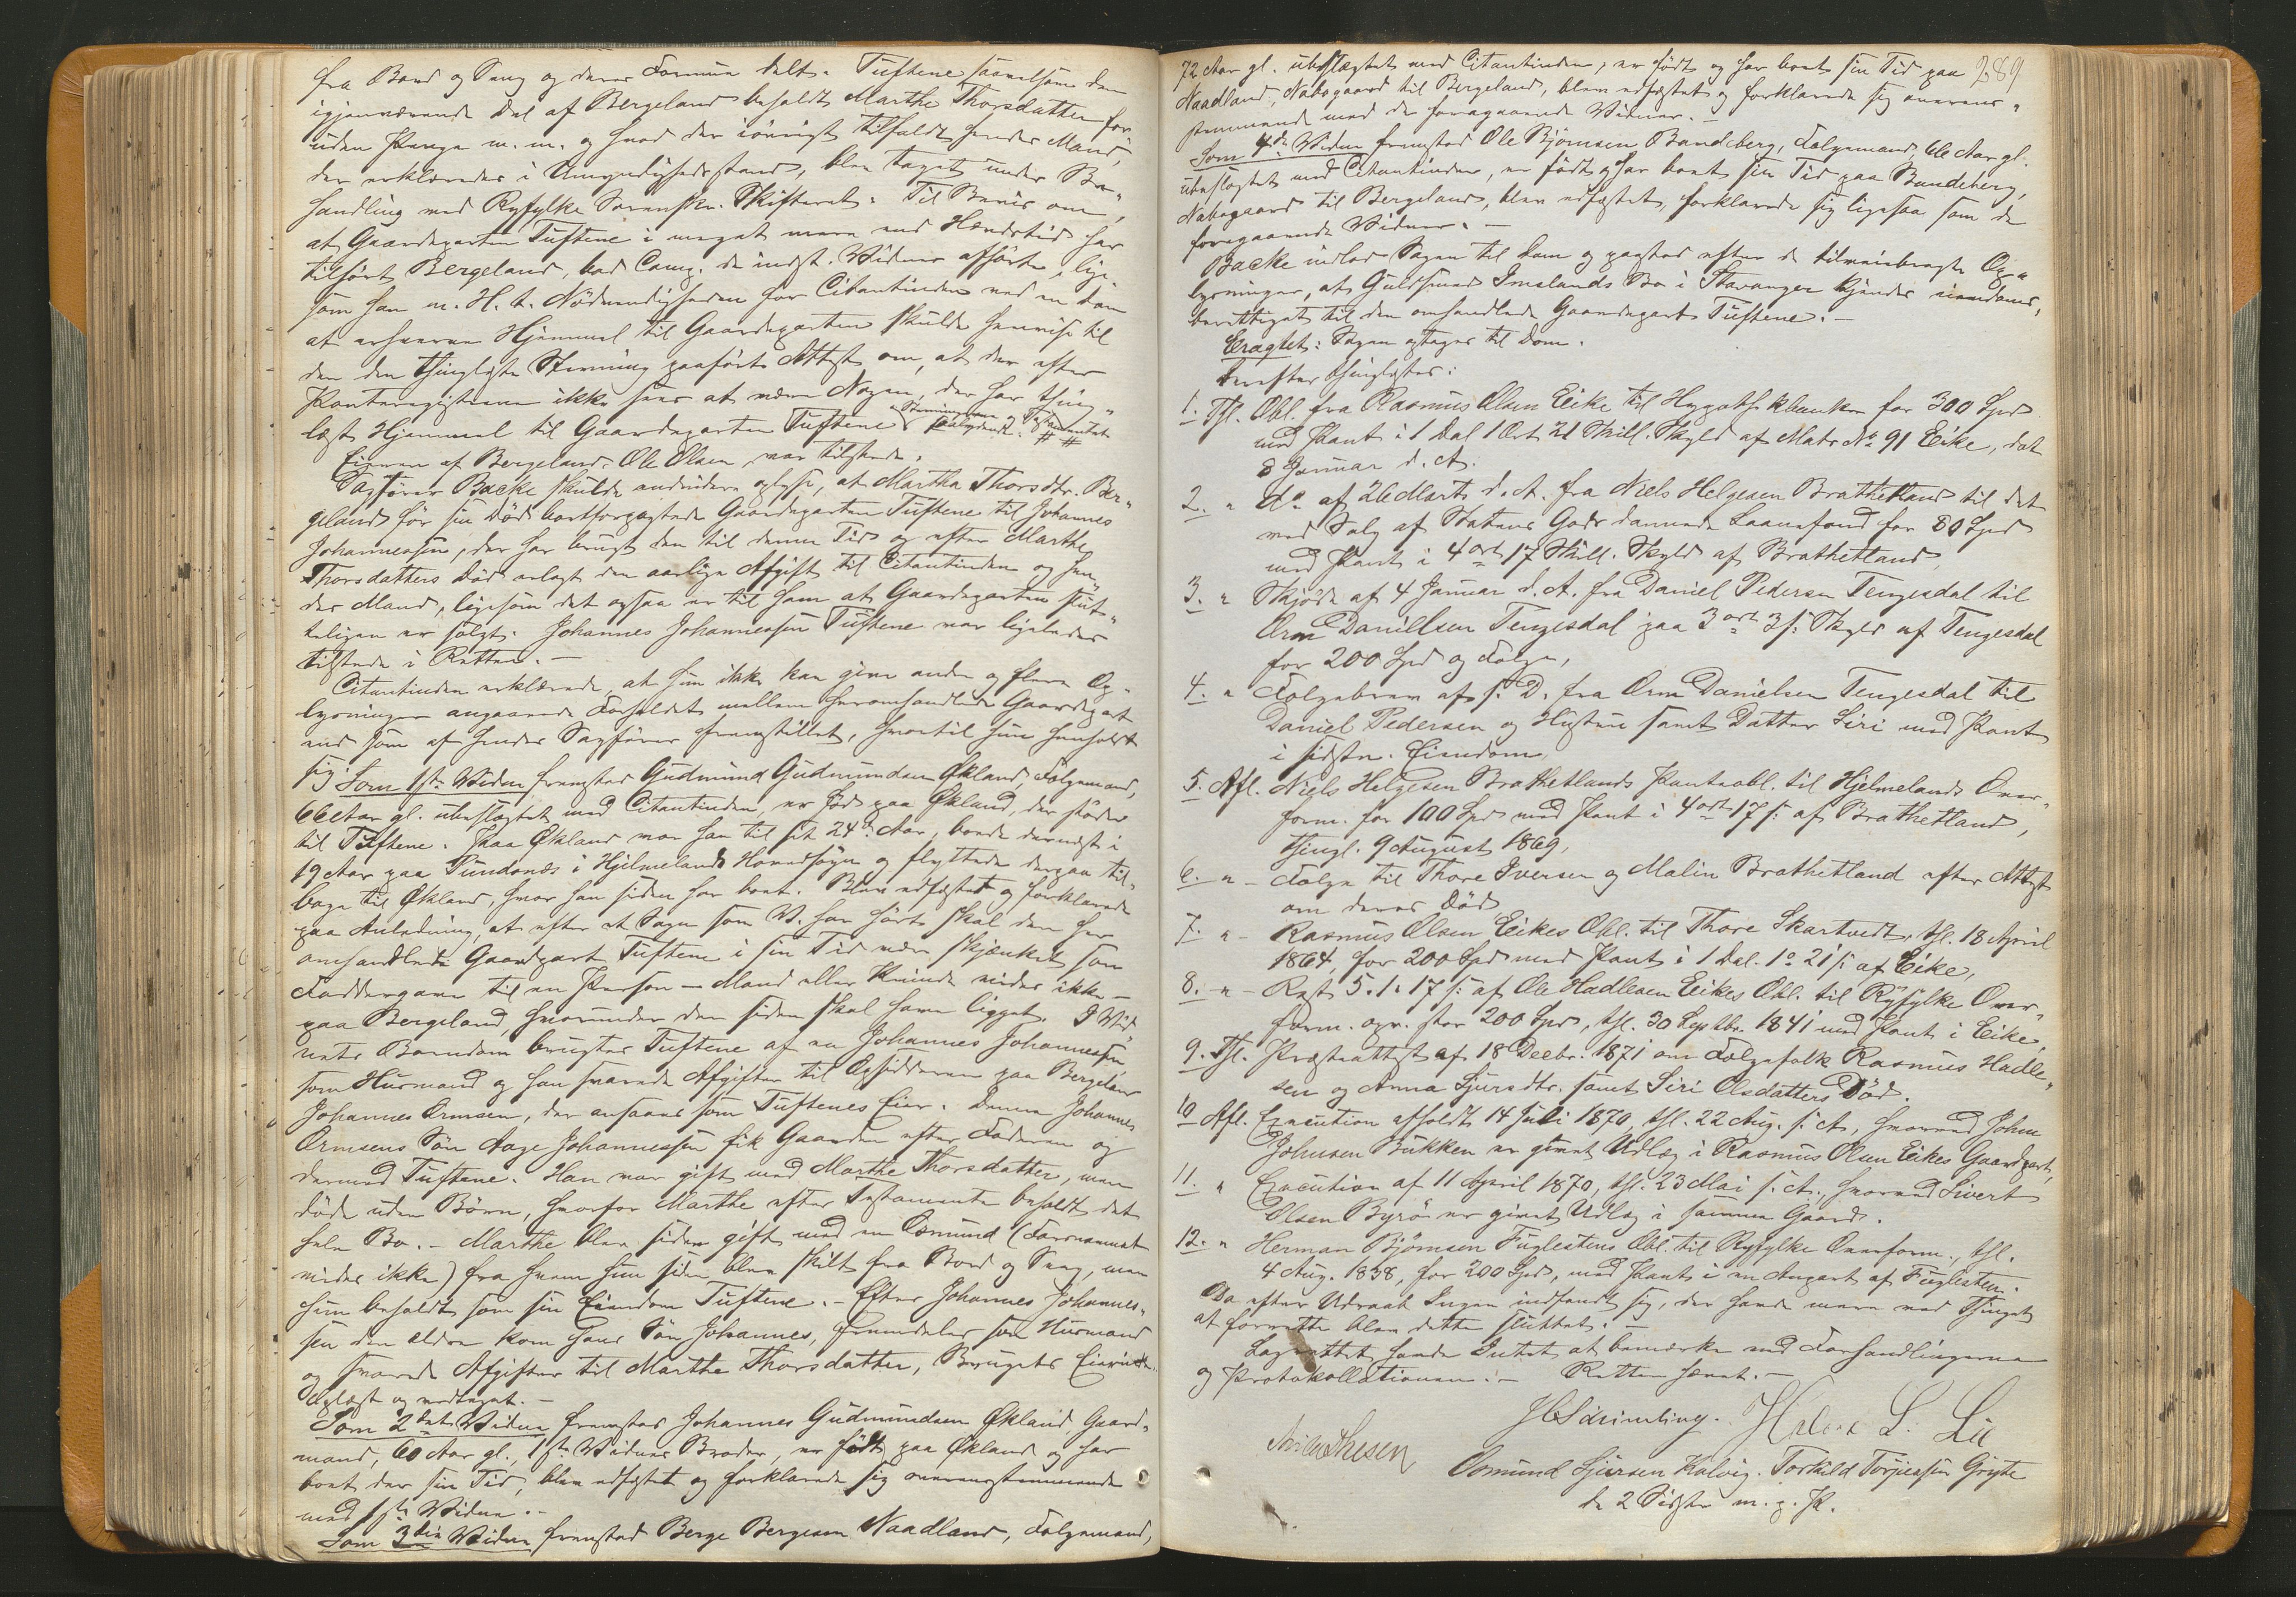 fra Bord og Seng og deres Formue delt. Tuftene saavelsom den
igjenværende Del af Bergeland beholdt Marthe Thorsdatter for-
uden Penge m. m. og hvad der iøvrigt tilfaldt hendes Mand,
der erklæredes i Umyndighedsstand, blev taget under Be-
handling ved Ryfylke Sorenskr. Skifteret. Til Bevis om,
at Gaardparten Tuftene i meget mere end Hævdstid har
tilhørt Bergeland, bad Comp. de indst. Vidner afhørte, lige
som han m. H. t. Nødvendigheden for Citantinden ved en Dom
at erhverve Hjemmel til Gaardparten skulde henvise til
den den thinglyste Stevning paaførte Attest om, at der efter
Panteregisterne ikke sees at være Nogen, der har thing-
læst Hjemmel til Gaardparten Tuftene Stevningerne og Testamentet
saalydende. # #
Eieren af Bergeland, Ole Olsen var tilstede.
Sagfører Backe skulde endvidere oplyse, at Martha Thorsdtr. Ber-
geland før sin Død bortforpagtede Gaardparten Tuftene til Johannes
Johannessen, der har brugt den til denne Tid og efter Marthe
Thorsdatters Død erlagt den aarlige Afgift til Citantinden og hen-
des Mand, ligesom det ogsaa er til ham at Gaardparten slut-
teligen er solgt. Johannes Johannessen Tuftene var ligeledes
tilstede i Retten. —
Citantinden erklærede at hun ikke kan give andre og flere Op-
lysninger angaaende Forholdet mellem heromhandlede Gaardpart
end som af hendes Sagfører fremstillet, hvortil hun henholdt
sig. Som 1ste Vidne fremstod Gudmund Gudmundsen Økland, Folgemand,
66 Aar gl. ubeslægtet med Citantinden, er født paa Økland, der støder
til Tuftene. Paa Økland var han til sit 24de Aar, boede dernæst i
19 Aar paa Tundsnæs i Hjelmelands Hovedsogn og flyttede derpaa til-
bage til Økland, hvor han siden har boet. Blev edfæstet og forklarede
paa Anledning, at efter et Sagn som V. har hørt skal den her
omhandlede Gaardpart Tuftene i sin Tid være skjænket som
Faddergave til en Person — Mand eller Kvinde vides ikke —
paa Bergeland, hvorunder den siden skal have ligget. I Vid-
nets Barndom brugtes Tuftene af en Johannes Johannessen
som Husmand og han svarede Afgifter til Opsidderen paa Bergeland
Johannes Ormsen, der ansaaes som Tuftenes Eier. Denne Johannes
Ormsens Søn Aage Johannessen fik Gaarden efter Faderen og
dermed Tuftene. Han var gift med Marthe Thorsdatter, men
døde uden Børn, hvorfor Marthe efter Testamente beholdt det
hele Bo. — Marthe blev siden gift med en Osmund (Farsnavnet
vides ikke) fra hvem hun siden blev skilt fra Bord og Seng, men
hun beholdt som sin Eiendom Tuftene. — Efter Johannes Johannes-
sen den ældre kom hans Søn Johannes, fremdeles som Husmand
og svarede Afgifter til Marthe Thorsdatter, Brugets Eierinde.
Oplæst og vedtaget. —
Som 2det Vidne fremstod Johannes Gudmundsen Økland, Gaard-
mand, 60 Aar gl., 1ste Vidnes Broder, er født paa Økland og har
boet der sin Tid, blev edfæstet og forklarede sig overensstemmende
med 1ste Vidne. —
Som 3die Vidne fremstod Berge Bergesen Naadland, Folgemand,
289
72 Aar gl. ubeslægtet med Citantinden, er født og har boet sin Tid paa
Naadland, Nabogaard til Bergeland, blev edfæstet og forklarede sig overens-
stemmende med de foregaaende Vidner. —
Som 4de Vidne fremstod Ole Bjørnsen Bandeberg, Folgemand, 66 Aar gl.
ubeslægtet med Citantinden, er født og har boet sin Tid paa Bandeberg,
Nabogaard til Bergeland, blev edfæstet, forklarede sig ligesaa som de
foregaaende Vidner. —
Backe indlod Sagen til Dom og paastod efter de tilveiebragte Op-
lysninger, at Guldsmed Imslands Bo i Stavanger kjendes eiendoms-
berettiget til den omhandlede Gaardpart Tuftene. —
Eragtet: Sagen optages til Dom.
Derefter thinglæstes:
1. Thl. Obl. fra Rasmus Olsen Eike til Hypothekbanken for 300 Spd
med Pant i 1 Dal 1 Ort 21 Skill. Skyld af Matr No 91 Eike, dat
8 Januar d. A.
2. " do af 26 Marts d. A. fra Niels Helgesen Brathetland til det
ved Salg af Statens Gods dannede Laanefond for 80 Spd
med Pant i 4 ort 17 Skill. Skyld af Brathetland
3. " Skjøde af 4 Januar d. A. fra Daniel Pedersen Tengesdal til
Orm Danielsen Tengesdal paa 3 ort 3 s: Skyld af Tengesdal
for 200 Spd og Folge,
4. " Folgebrev af s. D. fra Orm Danielsen Tengesdal til
Daniel Pedersen og Hustru samt Datter Siri med Pant
i sidstn. Eiendom
5. Afl. Niels Helgesen Brathetlands Panteobl. til Hjelmelands Over-
form. for 100 Spd med Pant i 4 ort 17 s: af Brathetland,
thingl. 9 August 1869,
6. " — Folge til Thore Iversen og Malin Brathetland efter Attest
om deres Død
7. " — Rasmus Olsen Eikes Obl. til Thore Skartvedt, thl. 18 April
1864, for 200 Spd med Pant i 1 Dal. 1 o 21 s: af Eike,
8. " — Rest 5. 1. 17 s: af Ole Hadlesen Eikes Obl. til Ryfylke Over-
form. opr. stor 200 Spd, thl. 30 Septbr. 1841 med Pant i Eike,
9. Thl. Præsteattest af 18 Decbr. 1871 om Folgefolk Rasmus Hadle-
sen og Anna Sjursdtr. samt Siri Olsdatters Død.
10 Afl. Execution afholdt 14 Juli 1870, thl. 22 Aug. s. A., hvorved John
Johnsen Bukken er givet Udlæg i Rasmus Olsen Eikes Gaardpart,
11. " Execution af 11 April 1870, thl. 23 Mai s. A., hvorved Sivert
Olsen Byrø er givet Udlæg i samme Gaard.
12. " Herman Bjørnsen Fuglestens Obl. til Ryfylke Overform., thl.
4 Aug. 1838, for 200 Spd, med Pant i en Anpart af Fuglesten.
Da efter Udraab Ingen indfandt sig, der havde mere ved Thinget
at forrette blev dette sluttet. —
Lagrettet havde Intet at bemærke ved Forhandlingerne
og Protokollationen. — Retten hævet. —
Halvor L. Lie
Osmund Sjursen Kalvig. Torkild Torjussen Gryte
de 2 Sidste m. p. P.